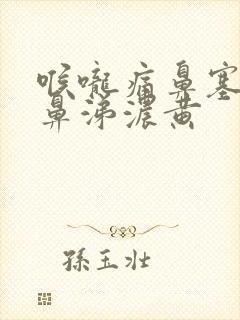 喉嚨痛鼻塞
鼻涕濃黃
孫玉壯